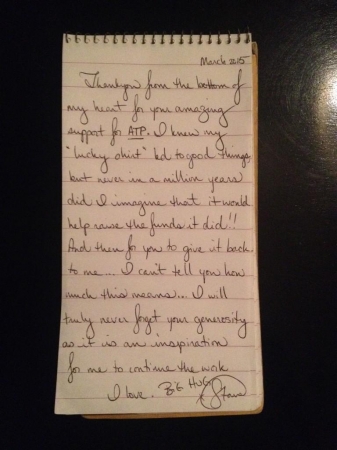 March 2015
Thank you from the bottom of
my heart for your amazing
support for ATP. I knew my
"lucky shirt" led to good things,
but never in a million years
did I imagine that it would
help raise the funds it did!!
And then for you to give it back
to me... I can't tell you how
much this means... I will
truly never forget your generosity
as it is an inspiration
for me to continue the work
I love. Big HUG